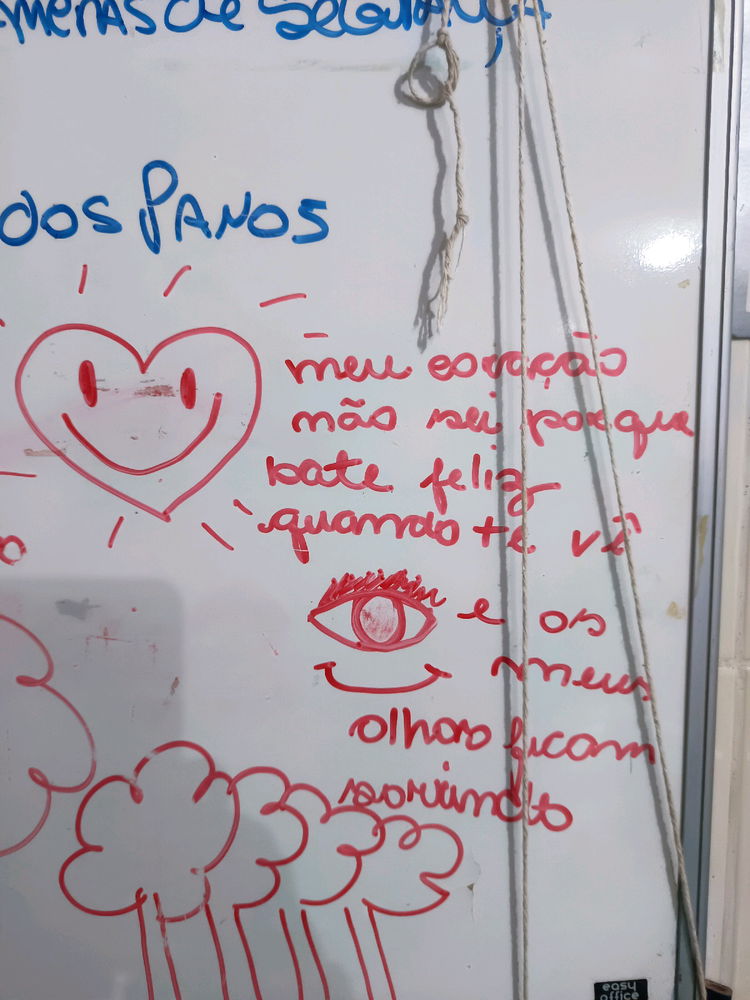 amenas de Segurança
dos Panos
meu coração
não sei porque
bate feliz
quando te vê
e os
meus
olhos ficam
sorrindo
easy
office